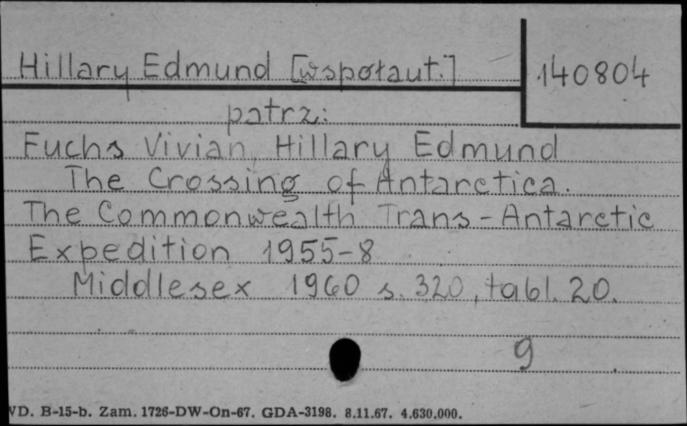 Hillary Edmund [współaut.]
140804
patrz:
Fuchs Vivian, Hillary Edmund
The Crossing of Antarctica.
The Commonwealth Trans-Antarctic
Expedition 1955-8
Middlesex 1960 s. 320, tabl. 20.
9
WD. B-15-b. Zam. 1726-DW-On-67. GDA-3198. 8.11.67. 4.630.000.